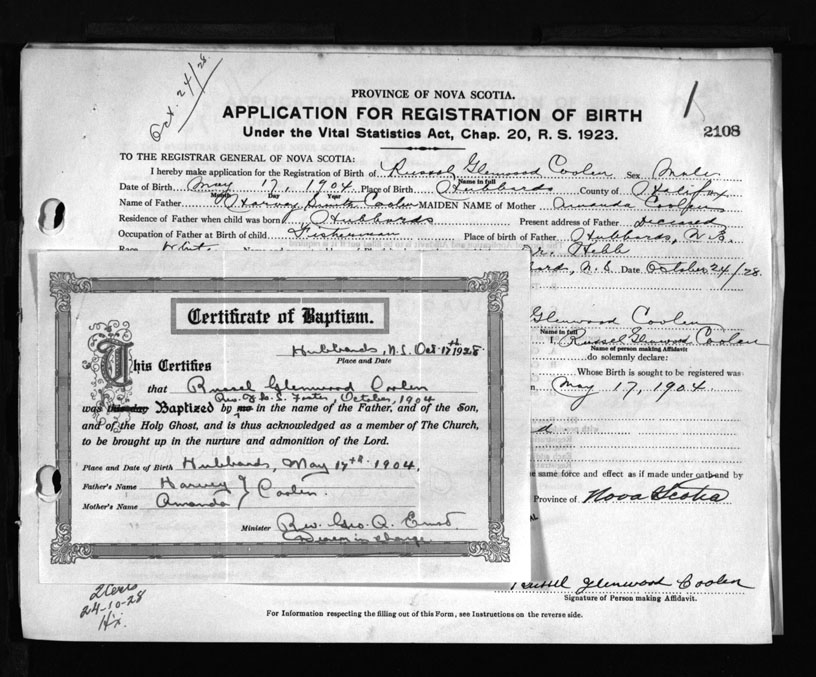 Oct. 24/28
PROVINCE OF NOVA SCOTIA.
APPLICATION FOR REGISTRATION OF BIRTH
Under the Vital Statistics Act, Chap. 20, R. S. 1923.
2108
TO THE REGISTRAR GENERAL OF NOVA SCOTIA:
I hereby make application for the Registration of Birth of Russel Glenwood Coolen Sex Male
Name in full
Date of Birth May 17, 1904 Place of Birth Hubbards County of Halifax
Day Year
Name of Father Harvey Coolen MAIDEN NAME of Mother Amanda
Residence of Father when child was born Hubbards Present address of Father Deceased
Occupation of Father at Birth of child Fisherman Place of birth of Father Hubbards, N.S.
Dr. Hebb
N.S. Date October 24/28
Certificate of Baptism.
Hubbards, N.S. Oct. 17th 1928
Place and Date
This Certifies
that Russel Glenwood Coolen
Rev. Foster, October, 1904
was this day Baptized by me in the name of the Father, and of the Son,
and of the Holy Ghost, and is thus acknowledged as a member of The Church,
to be brought up in the nurture and admonition of the Lord.
Place and Date of Birth Hubbards, May 17th 1904.
Father's Name Harvey Coolen
Mother's Name Amanda
Minister Rev. Geo. A. Ernst
Deacon in charge
Glenwood Coolen
Name in full
I, Russel Glenwood Coolen
Name of person making Affidavit
do solemnly declare:
Whose Birth is sought to be registered was
May 17, 1904
same force and effect as if made under oath and by
Province of Nova Scotia
Russel Glenwood Coolen
Signature of Person making Affidavit.
24-10-28
Hx.
For Information respecting the filling out of this Form, see Instructions on the reverse side.